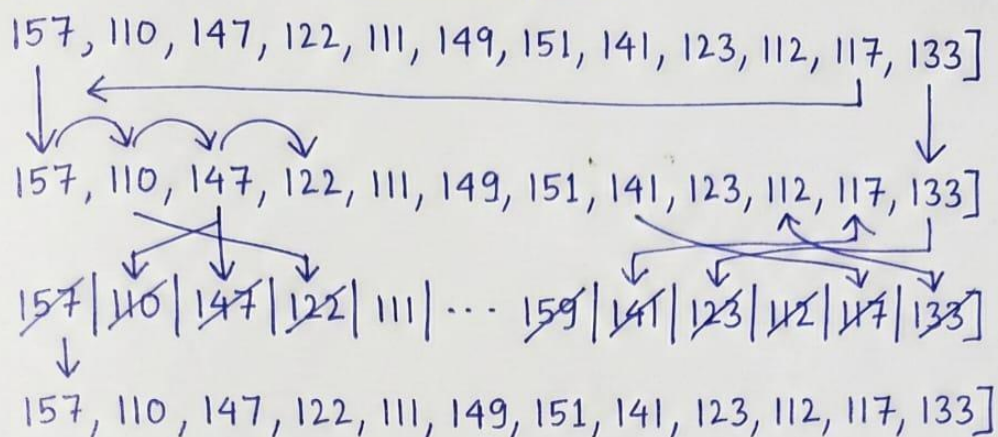 157, 110, 147, 122, 111, 149, 151, 141, 123, 112, 117, 133]
157, 110, 147, 122, 111, 149, 151, 141, 123, 112, 117, 133]
157 | 110 | 147 | 122 | 111 | ... 159 | 141 | 123 | 112 | 117 | 133]
157, 110, 147, 122, 111, 149, 151, 141, 123, 112, 117, 133]